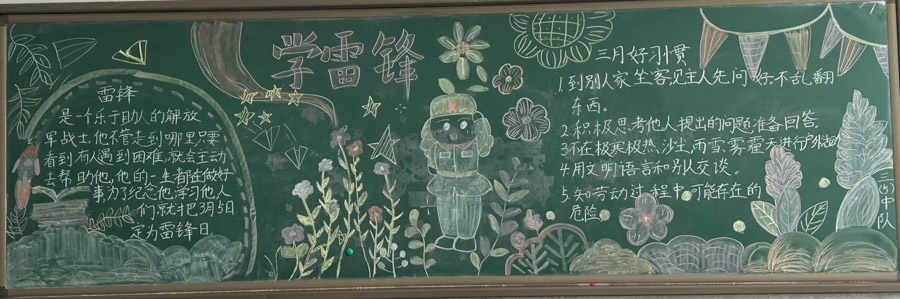 学雷锋
雷锋
是一个乐于助人的解放
军战士.他不管走到哪里只要
看到有人遇到困难,就会主动
去帮助他,他的一生都在做好
事.为了纪念他,学习他人
们就把3月5日
定为雷锋日
三月好习惯
1.到别人家坐客,见主人先问好.不乱翻
东西.
2.积极思考他人提出的问题,准备回答.
3.不在极寒极热,沙尘,雨雪,雾霾天进行户外活动
4.用文明语言和别人交谈.
5.知劳动过程中可能存在的
危险.
三(5)中队